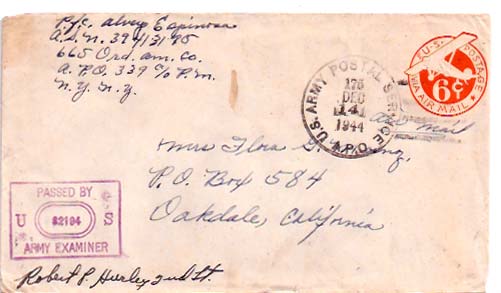 Pfc. Alvey Espinosa
A.S.N. 39413195
665 Ord. am. co.
A.P.O. 339 c/o P.m.
N.Y. N.Y.
U.S. POSTAGE
6¢
VIA AIR MAIL
U.S. ARMY POSTAL SERVICE
A.P.O.
175
DEC
14
1944
Air Mail
Mrs Flora
P.O. Box 584
Oakdale, California
PASSED BY
U 82194 S
ARMY EXAMINER
Robert P. Hurley 2nd Lt.